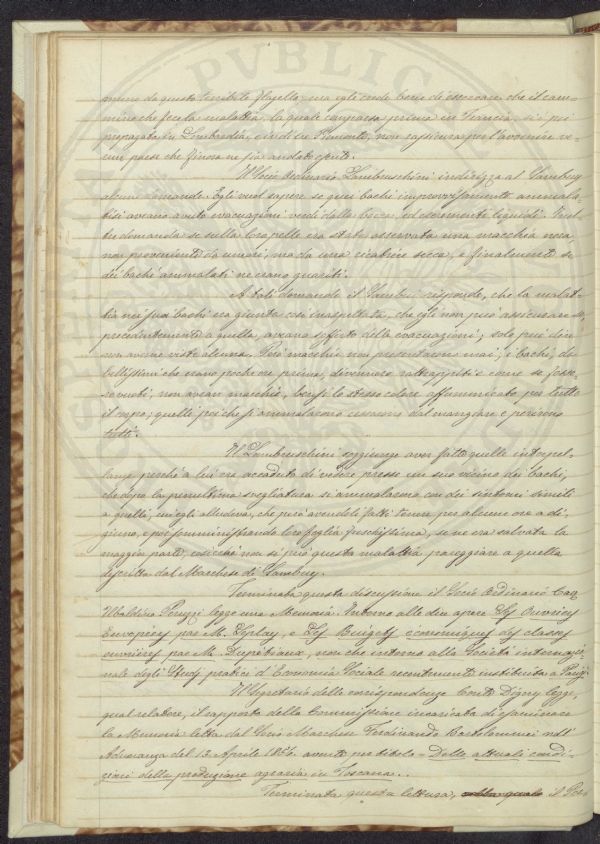 mune da questo terribile flagello: ma egli crede bene di osservare che il cam-
mino che fece la malattia, la quale comparsa prima in Francia, si è poi
propagata in Lombardia, e indi in Piemonte, non rassicura per l'avvenire ve-
run paese che finora ne sia andato esente.
Il Socio Ordinario Lambruschini indirizza al
alcune domande. Egli vuol sapere se quei bachi improvvisamente ammala-
tisi aveano avuto evacuazioni verdi dalla bocca, ed escrementi liquidi. Inol-
tre domanda se sulla loro pelle era stata osservata una macchia nera,
non proveniente da umori, ma da una cicatrice secca, e finalmente se
dei bachi ammalati ne erano guariti.
A tali domande il risponde, che la malat-
tia nei suoi bachi era giunta così inaspettata, che egli non può assicurare se,
precedentemente a quella, aveano sofferto delle evacuazioni; solo può dire
non averne viste alcuna. Però macchie non presentarono mai; i bachi, da
bellissimi che erano poche ore prima, divennero rattrappiti e come se fosse-
ro vuoti, non avean macchie, bensì lo stesso colore affummicato per tutto
il corpo; quelli poi che si ammalarono cessarono dal mangiare e perirono
tutti.
Il Lambruschini soggiunge aver fatto quelle interpel-
lanze perchè a lui era accaduto di vedere presso un suo vicino dei bachi,
che dopo la penultima svegliatura si ammalarono con dei sintomi simili
a quelli, cui egli alludeva, che però avendoli fatti tenere per alcune ore a di-
giuno, e poi somministrando loro foglia freschissima, se ne era salvata la
maggior parte, cosicchè non si può questa malattia pareggiare a quella
descritta dal Marchese di
Terminata questa discussione il Socio Ordinario Cav.
Ubaldino Peruzzi legge una Memoria. Intorno alle due opere Les Ouvriers
Européens par M. Leplay, e Les Budgets économiques des classes
ouvrières par M. Dupétiaux, non che intorno alla Società internazio-
nale degli Studj pratici d'Economia Sociale recentemente instituita a Parigi.
Il Segretario delle corrispondenze Conte Digny legge,
qual relatore, il rapporto della Commissione incaricata di esaminare
la Memoria letta dal Socio Marchese Ferdinando Bartolommei nell'
Adunanza del 13 Aprile 1856. avente per titolo - Delle attuali condi-
zioni della produzione agraria in Toscana..
Terminata questa lettura, il